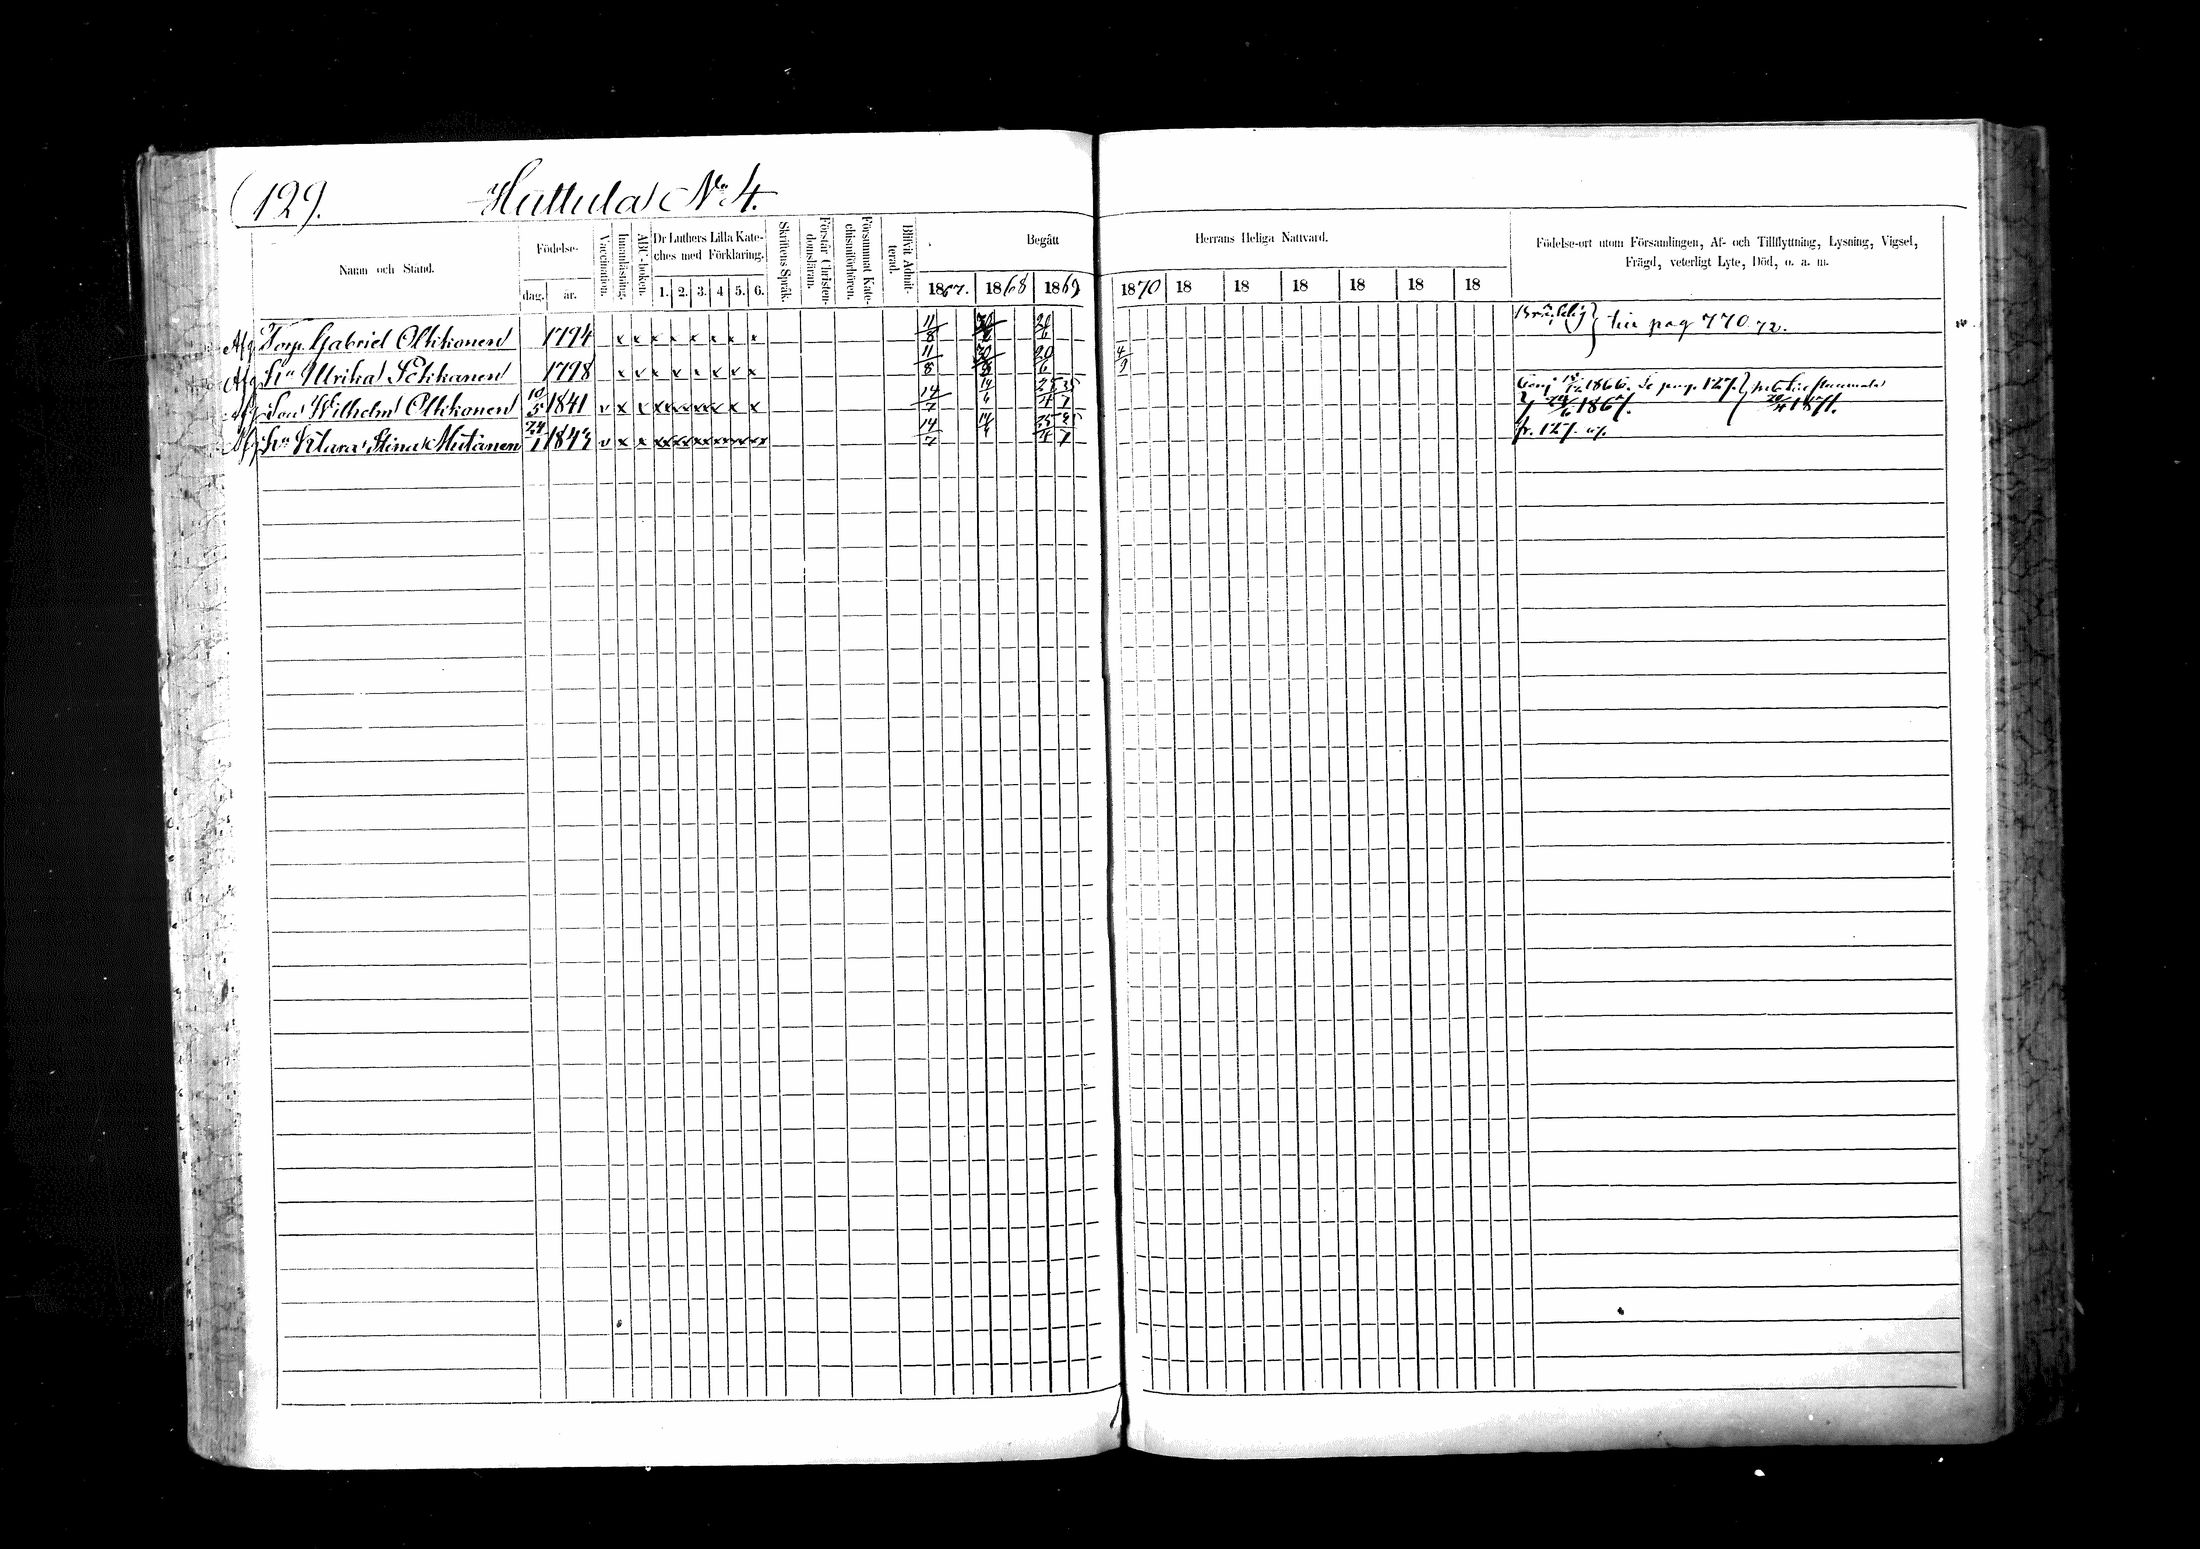 129. Huttula No 4.
Namn och Stånd.
Födelse-
dag.
år.
Vaccination.
Innanläsning.
ABC-boken.
Dr Luthers Lilla Kate-
ches med Förklaring.
1. 2. 3. 4 5. 6.
Skriftens Språk.
Förstår Christen-
domsläran.
Försummat Kate-
chismiförhören.
Blifvit Admit-
terad.
Begått Herrans Heliga Nattvard.
1867. 1868 1869 1870 18 18 18 18 18 18
Födelse-ort utom Församlingen, Af- och Tillflyttning, Lysning, Vigsel,
Frägd, veterligt Lyte, Död, o. a. m.
Afg Torp. Gabriel Ollikonen 1794 x x x x x x x x 11/8 20/6 pag 770.72.
Afg Hu Ulrika Pekkanen 1798 x x x x x x x x 11/8 20/6 4/9
Afg Son Wilhelm Ollikonen 10/5 1841 v x x 14/7 1866. Se pag. 127.
1867. 1871.
Afg Hu Klara Stina Mutanen 24/1 1843 v x x 14/7 fr. 127.